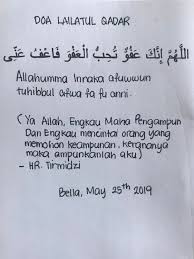 DOA LAILATUL QADAR
اللَّهُمَّ إِنَّكَ عَفُوٌّ تُحِبُّ الْعَفْوَ فَاعْفُ عَنِّى
Allahumma Innaka afuwwun
tuhibbul afwa fa fu anni.
(Ya Allah, Engkau Maha Pengampun
Dan Engkau mencintai orang yang
memohon keampunan, kerananya
maka ampunkanlah aku)
- HR. Tirmidzi
Bella, May 25th 2019